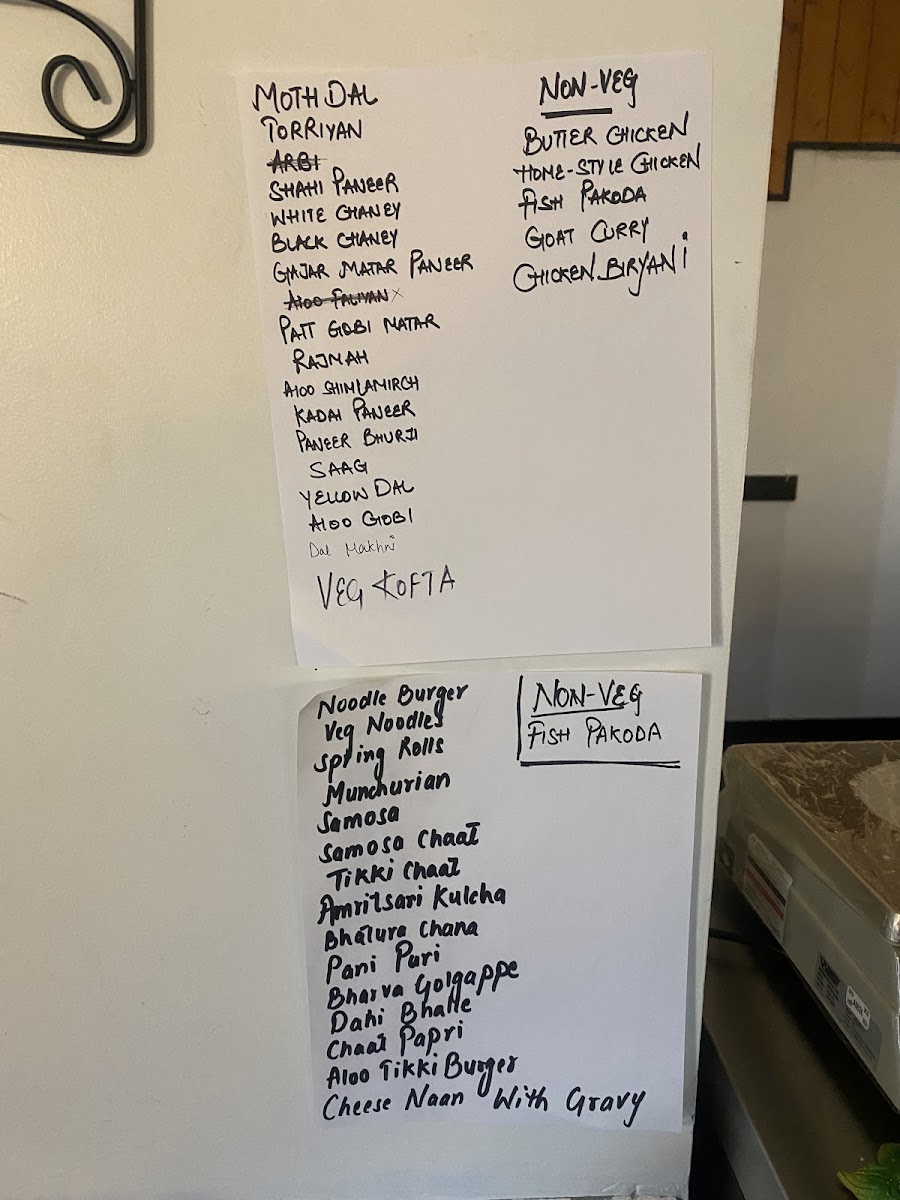 MOTH DAL
TORRIYAN
ARBI
SHAHI PANEER
WHITE CHANEY
BLACK CHANEY
GAJAR MATAR PANEER
ALOO FALIYAN X
PATT GOBI MATAR
RAJMAH
ALOO SHIMLAMIRCH
KADAI PANEER
PANEER BHURJI
SAAG
YELLOW DAL
ALOO GOBI
Dal Makhni
VEG KOFTA
NON-VEG
BUTTER CHICKEN
HOME-STYLE CHICKEN
FISH PAKODA
GOAT CURRY
CHICKEN BIRYANI
Noodle Burger
Veg Noodles
Spring Rolls
Munchurian
Samosa
Samosa Chaat
Tikki Chaat
Amritsari Kulcha
Bhatura Chana
Pani Puri
Bharva Golgappe
Dahi Bhalle
Chaat Papri
Aloo Tikki Burger
Cheese Naan With Gravy
NON-VEG
FISH PAKODA